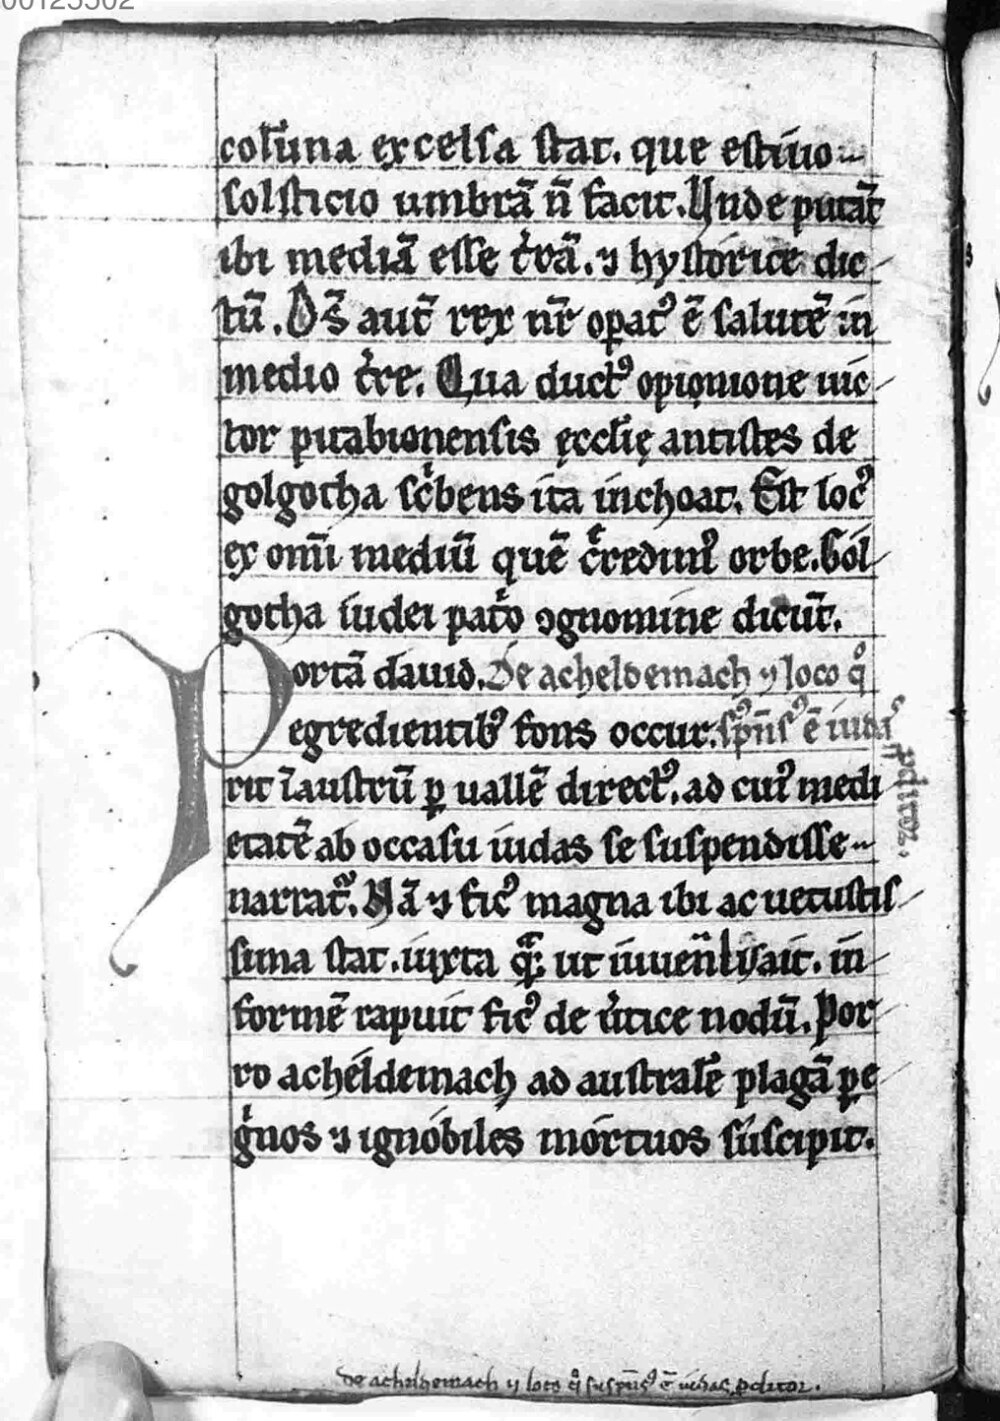 00125502
colūna excelsa stat. que estiuo
solsticio umbrā n̄ facit. Vnde putāt
ibi mediā esse t̓rā. ⁊ hystorice dic
tū. Ds̄ aut̄ rex nr̄ opat᷒ ē salutē in
medio t̓re. Qua duct᷒ opionione uic
tor pitabionensis ęccl̄ię antistes de
golgotha sc̓bens ita inchoat. Est loc᷒
ex om̄i mediū quē c̓redim᷒ orbe. Gol
gotha iudei pat̓o ꝯgnomine dicūt.
Portā dauid. De acheldemach ⁊ loco q̊
egredientib᷒ fons occur. suspēs᷒ ē iudas
rit ī austrū ꝑ uallē direct᷒. ad cui᷒ medi
ꝓditor.
etatē ab occasu iudas se suspendisse
narrat᷑. Nā ⁊ fic᷒ magna ibi ac uetustis
sima stat. iuxta q̄ ut iuuenl̄ ait. in
formē rapuit fic᷒ de u̓tice nodū. Por
ro acheldemach ad australē plagā ꝑe
g̓nos ⁊ ignobiles mortuos suscipit.
de acheldemach ⁊ loco q̊ suspēs᷒ ē iudas ꝓditor.